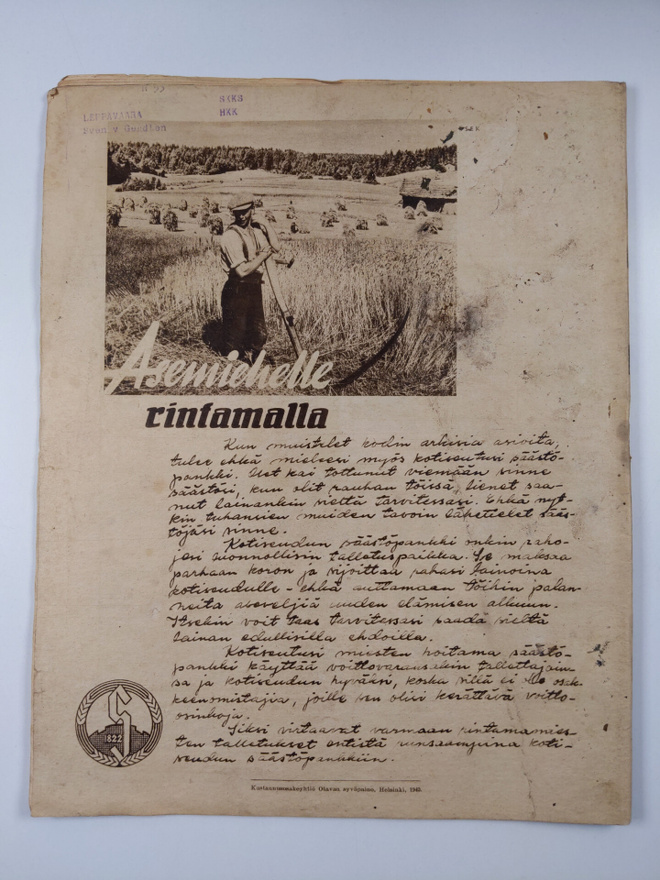 LEPPÄVAARA
SKKS
HKK
Sven v Gundlen
Asemiehelle
rintamalla
Kun muistelet kodin arkisia asioita,
tulee ehkä mieleesi myös kotiseutusi säästö-
pankki. Olet kai tottunut viemään sinne
säästösi, kun olit rauhan töissä, lienet saa-
nut lainankin sieltä tarvitessasi. Ehkä nyt-
kin tuhansien muiden tavoin lähettelet sääs-
töjäsi sinne.
Kotiseudun säästöpankki onkin raho-
jesi luonnollisin talletuspaikka. Se maksaa
parhaan koron ja sijoittaa rahasi lainoina
kotiseudulle - ehkä auttamaan töihin palan-
neita aseveljiä uuden elämisen alkuun.
Itsekin voit taas tarvitessasi saada sieltä
lainan edullisilla ehdoilla.
Kotiseutusi miesten hoitama säästö-
pankki käyttää voittovaransakin tallettajain-
sa ja kotiseudun hyväksi, koska sillä ei ole osak-
keenomistajia, joille sen olisi kerättävä voitto-
osinkoja.
Siksi virtaavat varmaan rintamamies-
ten talletukset entistä runsaampina koti-
seudun säästöpankkiin.
1822
Helsinki, 1943.